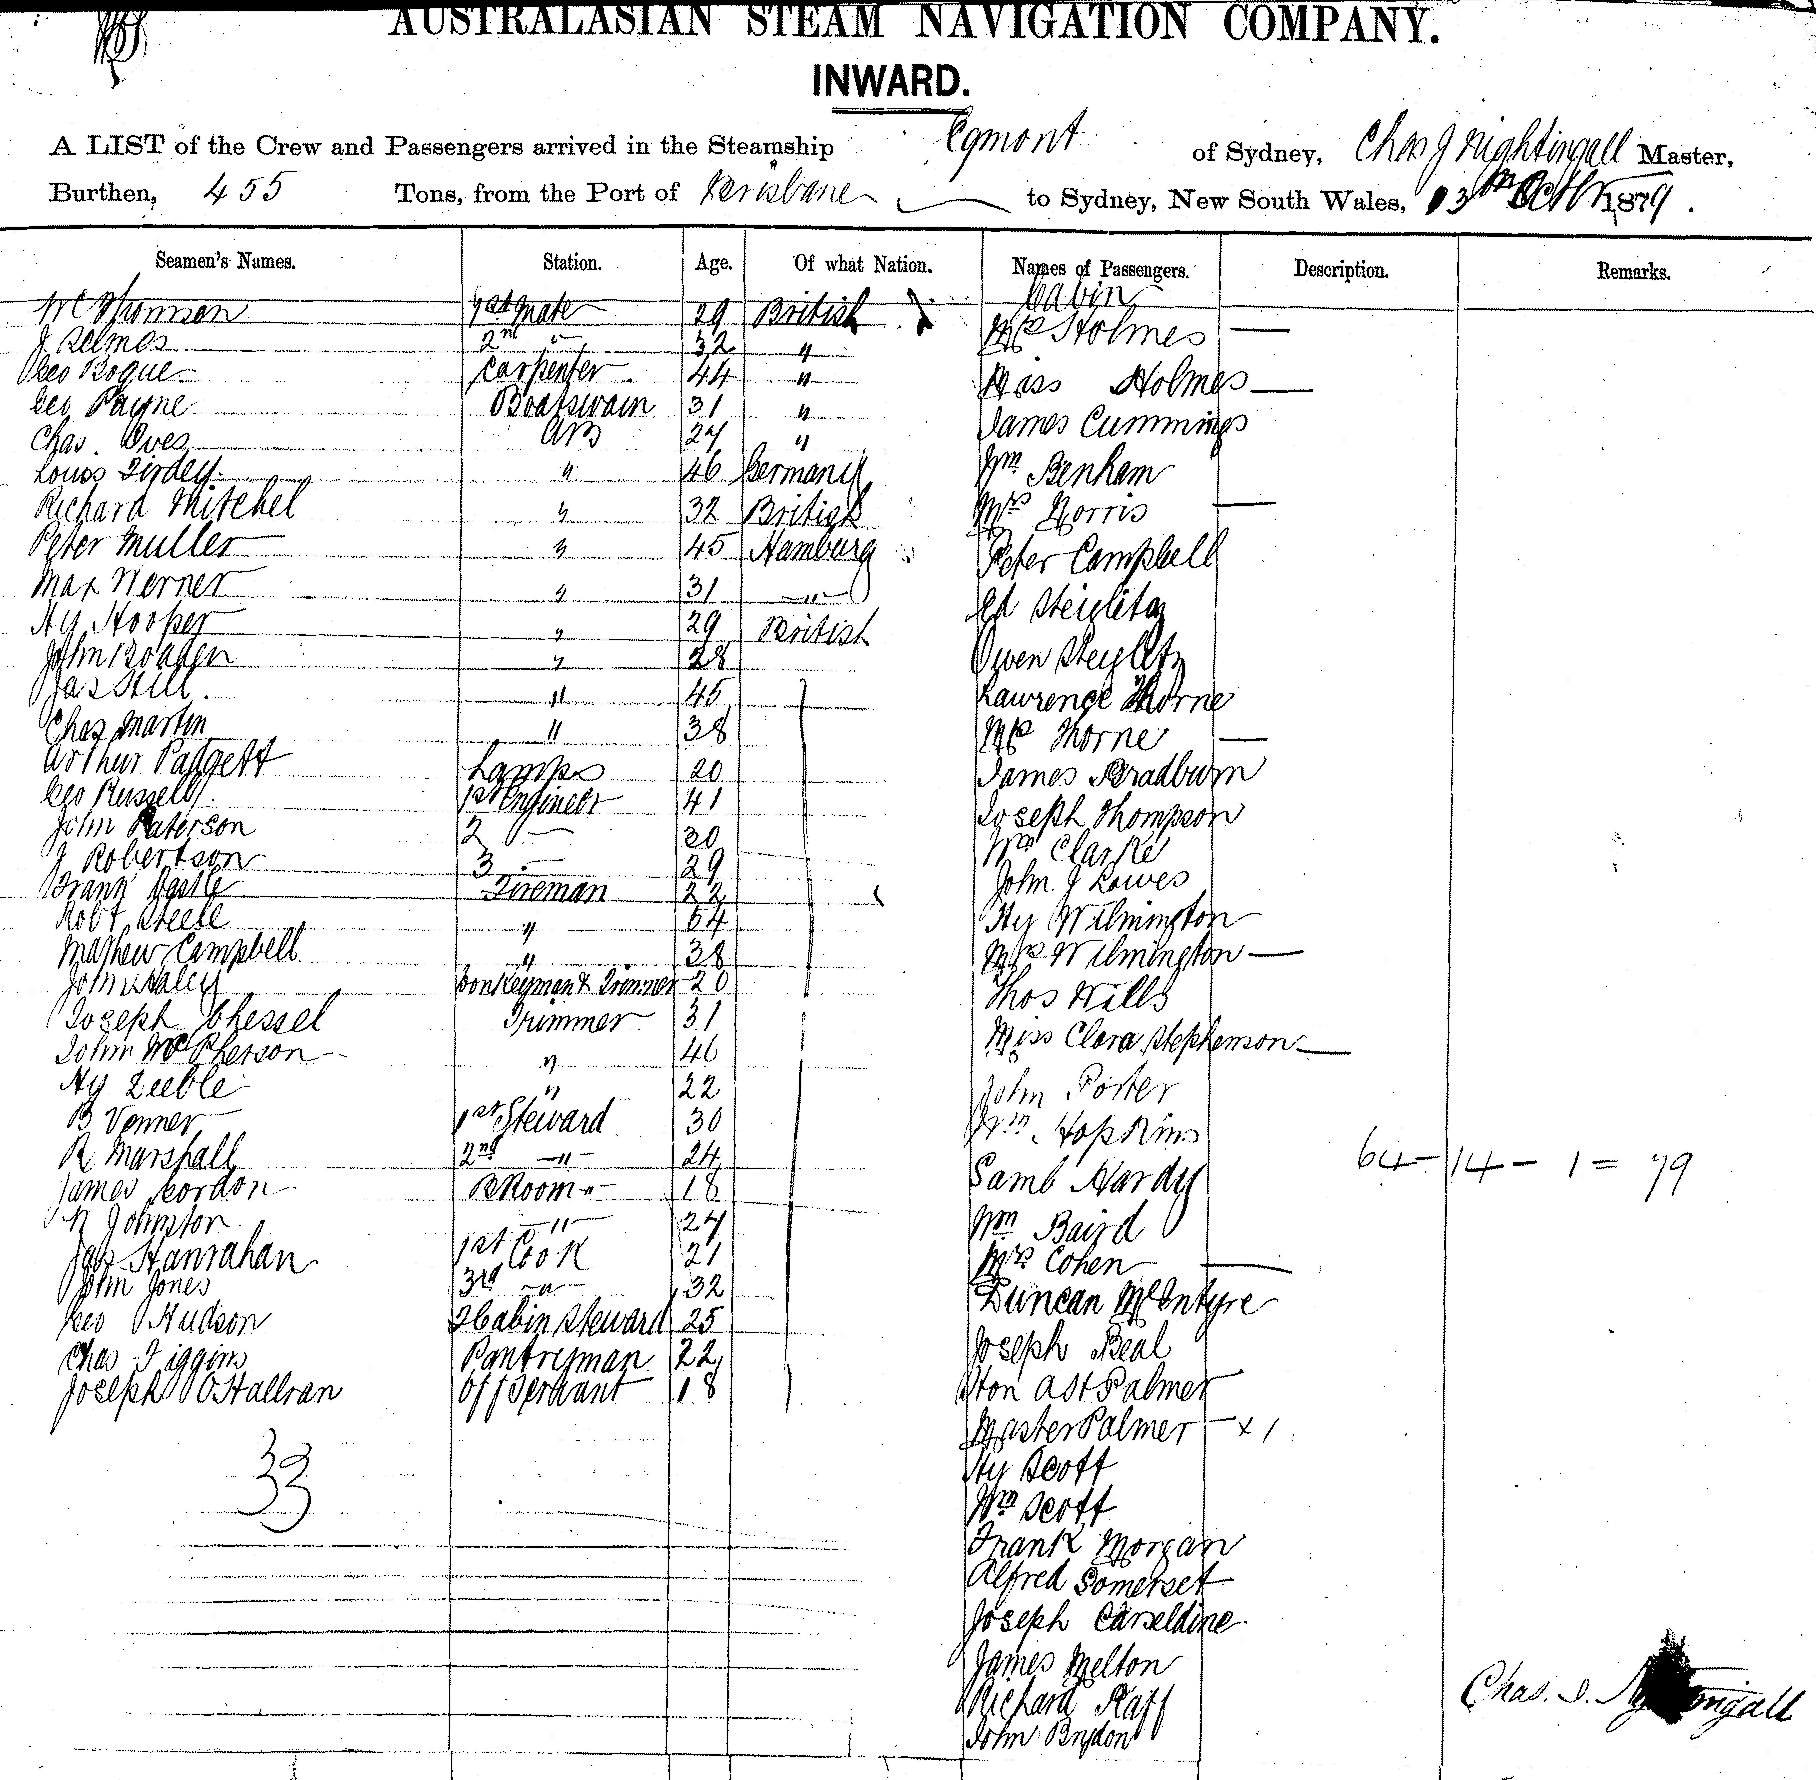 AUSTRALASIAN STEAM NAVIGATION COMPANY.
INWARD.
A LIST of the Crew and Passengers arrived in the Steamship Egmont of Sydney, Chas J Nightingall Master,
Burthen, 455 Tons, from the Port of Brisbane to Sydney, New South Wales, 13th Octbr 1879.
Seamen's Names. Station. Age. Of what Nation. Names of Passengers. Description. Remarks.
Cabin
1st Mate 29 British Mrs Holmes —
J 2nd " 32 " Miss Holmes —
Geo Bogue Carpenter 44 " James Cummings
Geo Payne Boatswain 31 " Wm Benham
Chas. Oves AB 27 " Mrs Norris —
Louis " 46 Germany Peter Campbell
Richard Mitchel " 32 British Ed Steiglitz
Peter Muller " 45 Hamburg Owen Steiglitz
Max Werner " 31 " Lawrence Thorne
Hy Hooper " 29 British Mrs Thorne —
John " 28 James Bradburn
Jas Hill " 45 Joseph Thompson
Chas Martin " 38 Wm Clarke
Arthur Padgett Lamps 20 John J Lowes
Geo Russell 1st Engineer 41 Hy Wilmington
John Paterson 2 — Mrs Wilmington —
J Robertson 3 — 29 Thos Wills
Frank Fireman 22 Miss Clara Stephenson —
Robt Steele " John Porter
Mathew Campbell " 38 Wm Hopkins
John Haley Donkeyman & Trimmer 20 Saml Hardy
Joseph Chessel Trimmer 31 Wm Baird
John McPherson " 46 Mrs Cohen —
Hy " 22 Duncan McEntyre
B Venner 1st Steward 30 Joseph Beal
R Marshall 2nd " 24 Hon A H Palmer
James Gordon " 18 Master Palmer — x 1
Johnston " 24 Hy Scott
Jas Hanrahan 1st Cook 21 Wm Scott
John Jones 3rd " 32 Frank Morgan
Geo Hudson 2 Cabin Steward 25 Alfred Somerset
Chas Figgins Pantryman 22 Joseph Carseldine
Joseph OHallran Off Servant 18 James Melton
Richard Raff
John Brydon
33
64 — 14 — 1 = 79
Chas. J. Nightingall